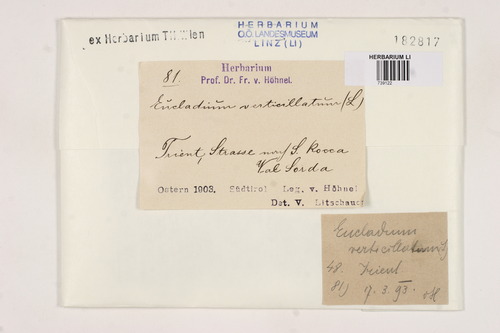 ex Herbarium TH Wien
HERBARIUM
O.Ö. LANDESMUSEUM
LINZ (LI)
182817
HERBARIUM LI
739122
81.
Herbarium
Prof. Dr. Fr. v. Höhnel.
Eucladium verticillatum (L)
Trient, Strasse nach S. Rocca
Val Sorda
Ostern 1903. Südtirol Leg. v. Höhnel
Det. V. Litschauer
Eucladium
verticillatum
48. Trient
81)